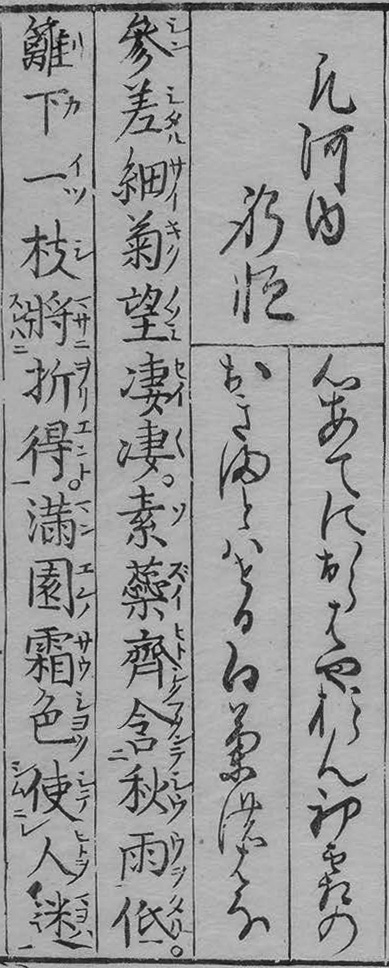 凡河内
躬恒
心あてにおらはやおらん初霜の
おきまとはせる白菊の花
參差細菊望凄凄。素蘂齊含秋雨低。
籬下一枝將折得。滿園霜色使人迷